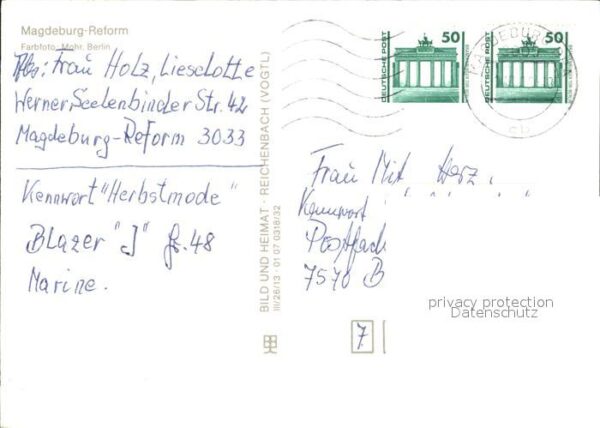 Magdeburg-Reform
Farbfoto: Mohr, Berlin
Abs: Frau Holz, Lieselotte
Werner Seelenbinder Str. 42
Magdeburg-Reform 3033
Kennwort "Herbstmode"
Blazer "J" Gr. 48
Marine.
BILD UND HEIMAT · REICHENBACH (VOGTL)
III/26/13 · 01 07 0318/32
50
DEUTSCHE POST
50
DEUTSCHE POST
MAGDEBURG
Frau Mit Herz
Kennwort
Postfach
7570 B
privacy protection
Datenschutz
7